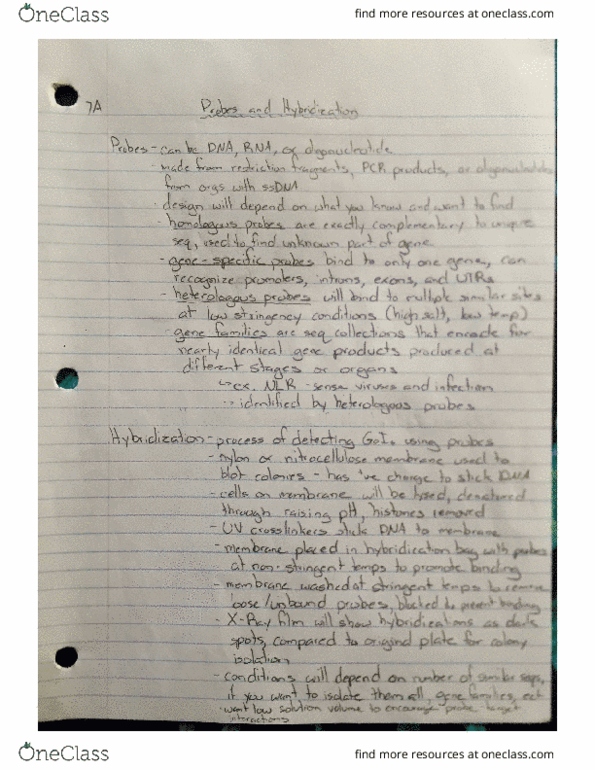 OneClass
find more resources at oneclass.com
7A
Probes and Hybridization
Probes - can be DNA, RNA, or oligonucleotide
- made from restriction fragments, PCR products, or oligonucleotides
from orgs with ssDNA
- design will depend on what you know and want to find
- homologous probes are exactly complementary to unique
seq, used to find unknown part of gene
- gene-specific probes bind to only one gene, can
recognize promoters, introns, exons, and UTRs
- heterologous probes will bind to multiple similar sites
at low stringency conditions (high salt, low temp)
- gene families are seq collections that encode for
nearly identical gene products produced at
different stages or organs
↳ ex. NLR - sense viruses and infection
-> identified by heterologous probes
Hybridization - process of detecting GoI using probes
- nylon or nitrocellulose membrane used to
blot colonies - has 've charge to stick DNA
- cells on membrane will be lysed, denatured
through raising pH, histones removed
- UV crosslinkers stick DNA to membrane
- membrane placed in hybridization bag with probes
at non-stringent temps to promote binding
- membrane washed at stringent temps to remove
loose/unbound probes, blocked to prevent binding
- X-Ray film will show hybridizations as dark
spots, compared to original plate for colony
isolation
- conditions will depend on number of similar seqs,
if you want to isolate them all, gene families, ect
- want low solution volume to encourage probe target
interactions
OneClass
find more resources at oneclass.com